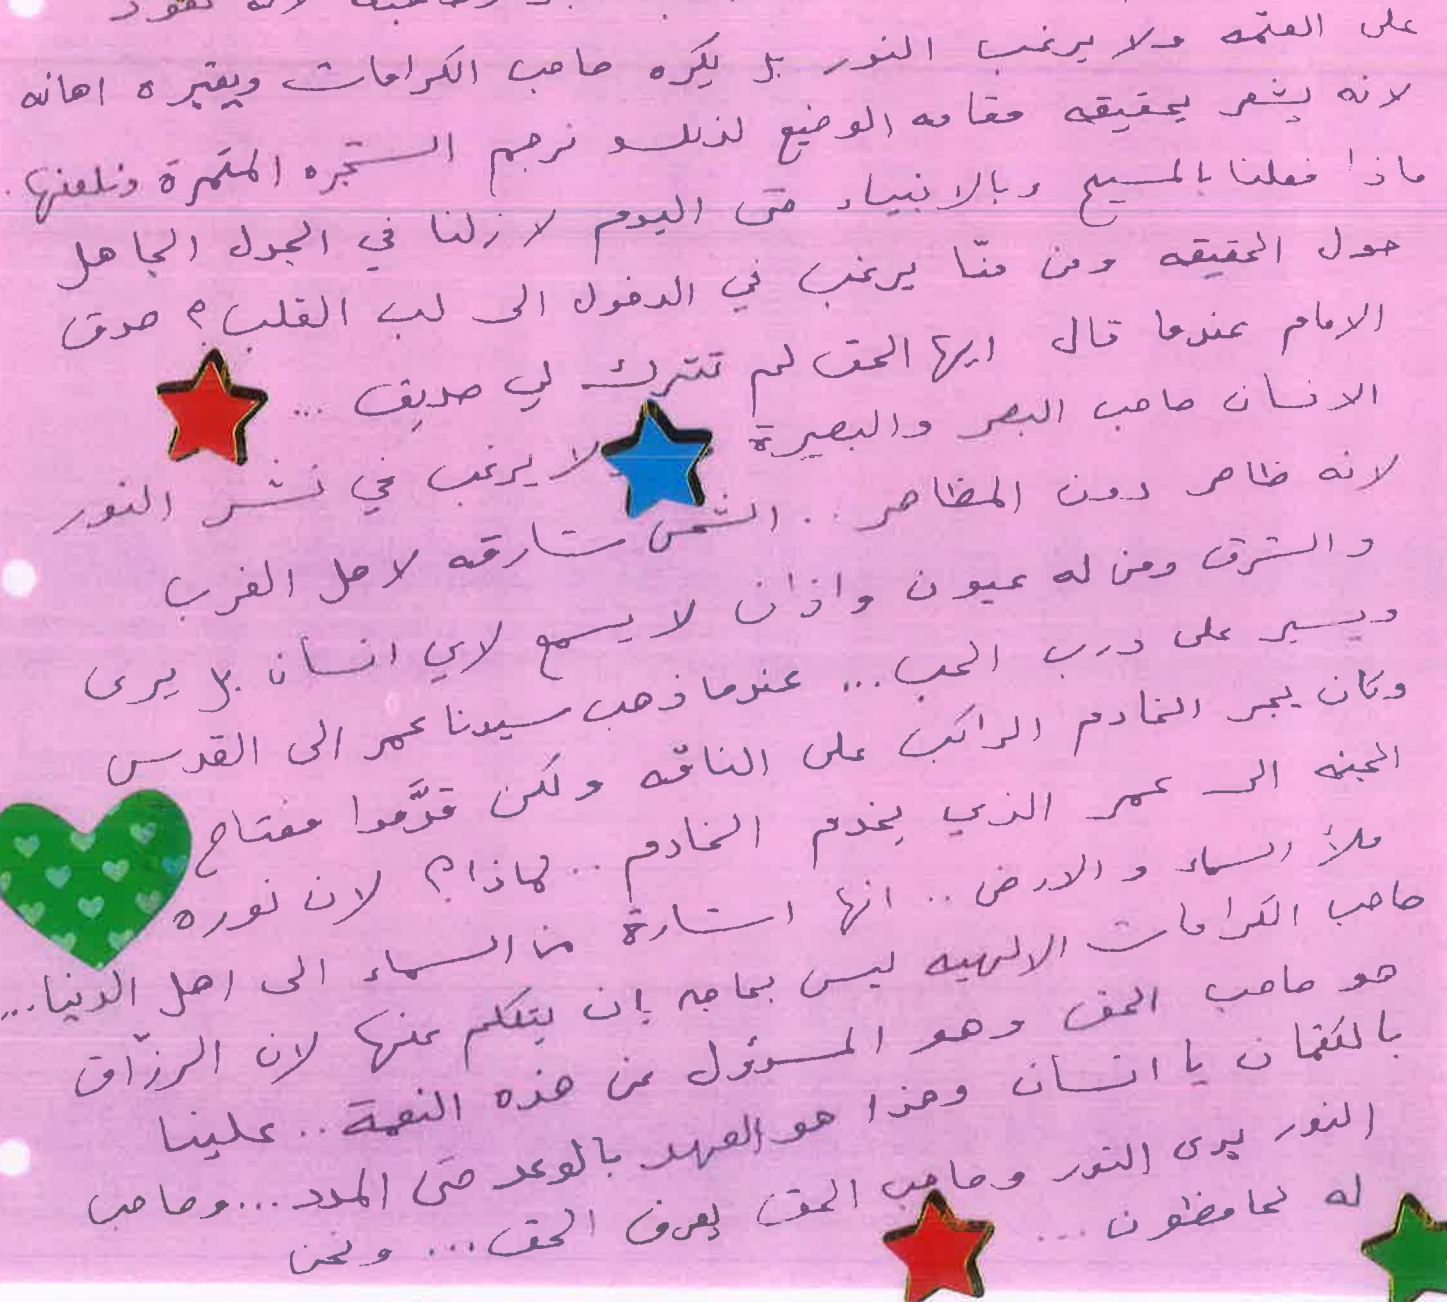 لانه تعود
على العتمه ولا يرغب النور بل يكره صاحب الكرامات ويعتبره اهانه
لانه يشعر بحقيقه مقامه الوضيع لذلك نرجم الشجره المثمرة ونلعنها.
ماذا فعلنا بالمسيح وبالانبياء حتى اليوم لازلنا في الجدل الجاهل
حول الحقيقه ومن منّا يرغب في الدخول الى لب القلب؟ صدق
الامام عندما قال ايها الحق لم تترك لي صديق ...
الانسان صاحب البصر والبصيرة لا يرغب في نشر النور
لانه ظاهر دون المظاهر .. الشمس شارقه لاهل الغرب
والشرق ومن له عيون واذان لا يسمع لاي انسان بل يرى
ويسير على درب الحب... عندما ذهب سيدنا عمر الى القدس
وكان يجر الخادم الراكب على الناقه ولكن قدَّموا مفتاح
الجنه الى عمر الذي يخدم الخادم .. لماذا؟ لان نوره
ملأ السماء والارض .. انها اشارة من السماء الى اهل الدنيا...
صاحب الكرامات الالهيه ليس بحاجه بان يتكلم عنها لان الرزّاق
هو صاحب الحق وهو المسؤول عن هذه النعمة .. علينا
بالكتمان يا انسان وهذا هو العهد بالوعد حتى المدد... وصاحب
النور يرى النور وصاحب الحق يعرف الحق ... ونحن
له لحافظون ...